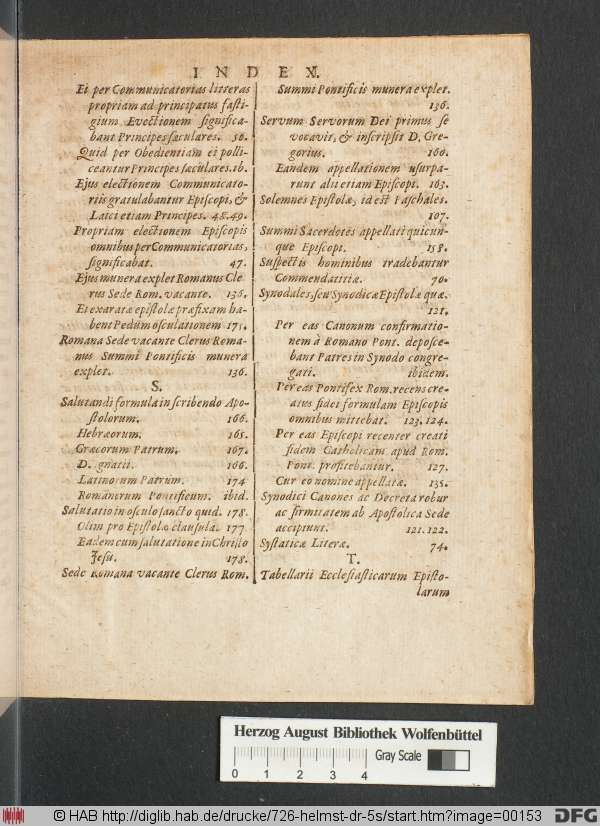 INDEX.
Ei per Communicatorias litteras
propriam ad principatus fasti-
gium Evectionem significa-
bant Principes sæculares. 56.
Quid per Obedientiam ei polli-
ceantur Principes sæculares. ib.
Ejus electionem Communicato-
riis gratulabantur Episcopi, &
Laici etiam Principes. 48.49.
Propriam electionem Episcopis
omnibus per Communicatorias,
significabat. 47.
Ejus munera explet Romanus Cle
rus Sede Rom. vacante. 136.
Et exaratæ epistolæ præfixam ha-
bent Pedum osculationem 171.
Romana Sede vacante Clerus Roma-
nus Summi Pontificis munera
explet. 136.
S.
Salutandi formula in scribendo Apo-
stolorum. 166.
Hebræorum. 165.
Græcorum Patrum. 167.
D. gnatii. 166.
Latinorum Patrum. 174
Romanorum Pontificum. ibid.
Salutatio in osculo sancto quid. 178.
Olim pro Epistolæ clausula. 177
Eadem cum salutatione in Christo
Jesu. 178.
Sede Romana vacante Clerus Rom.
Summi Pontificis munera explet.
136.
Servum Servorum Dei primus se
vocavit, & inscripsit D. Gre-
gorius. 160.
Eandem appellationem usurpa-
runt alii etiam Episcopi. 163.
Solemnes Epistolæ, id est Paschales.
107.
Summi Sacerdotes appellati quicun-
que Episcopi. 158.
Suspectis hominibus tradebantur
Commendatitiæ. 70.
Synodales, seu Synodicæ Epistolæ quæ.
121.
Per eas Canonum confirmatio-
nem à Romano Pont. deposce-
bant Patres in Synodo congre-
gati. ibidem.
Per eas Pontifex Rom. recens cre-
atus fidei formulam Episcopis
omnibus mittebat. 123.124.
Per eas Episcopi recenter creati
fidem Catholicam apud Rom.
Pont. profitebantur. 127.
Cur eo nomine appellatæ. 135.
Synodici Canones ac Decreta robur
ac firmitatem ab Apostolica Sede
accipiunt. 121.122.
Systaticæ Literæ. 74.
T.
Tabellarii Ecclesiasticarum Episto-
larum
Herzog August Bibliothek Wolfenbüttel
Gray Scale
0 1 2 3 4
© HAB http://diglib.hab.de/drucke/726-helmst-dr-5s/start.htm?image=00153
DFG